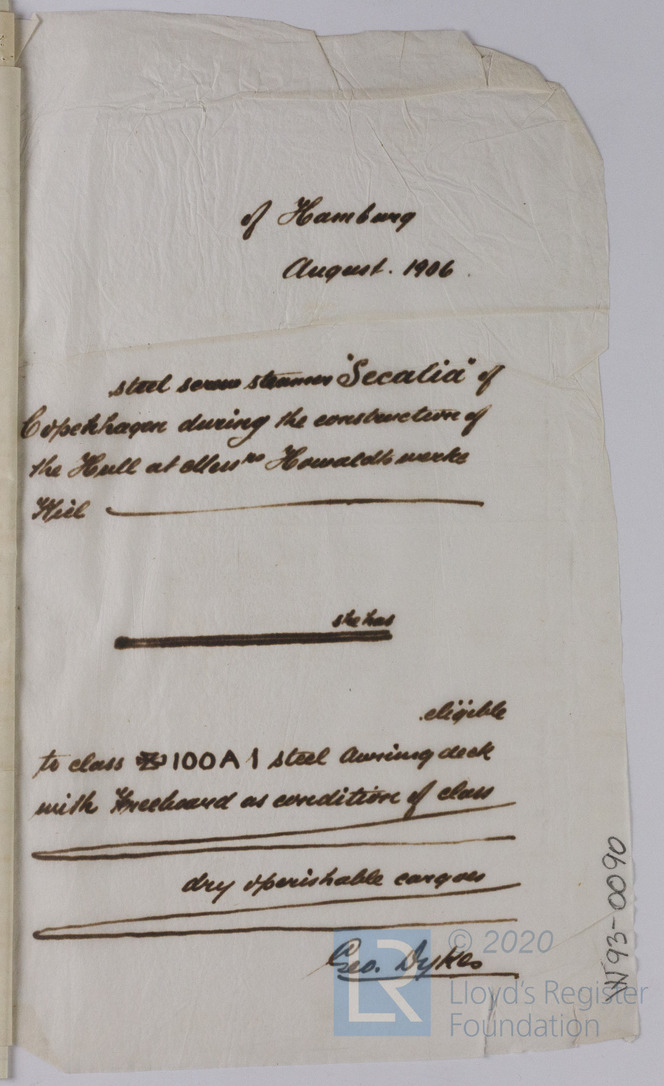 of Hamburg
August. 1906.
steel screw steamer "Secalia" of
Copenhagen during the construction of
the Hull at Messrs Howaldtswerke
Kiel
she has
eligible
to class ✠ 100 A 1 steel Awning deck
with Freeboard as condition of class
dry & perishable cargoes
Geo. Dykes
© 2020
Lloyd's Register
Foundation
LR
W93-0090